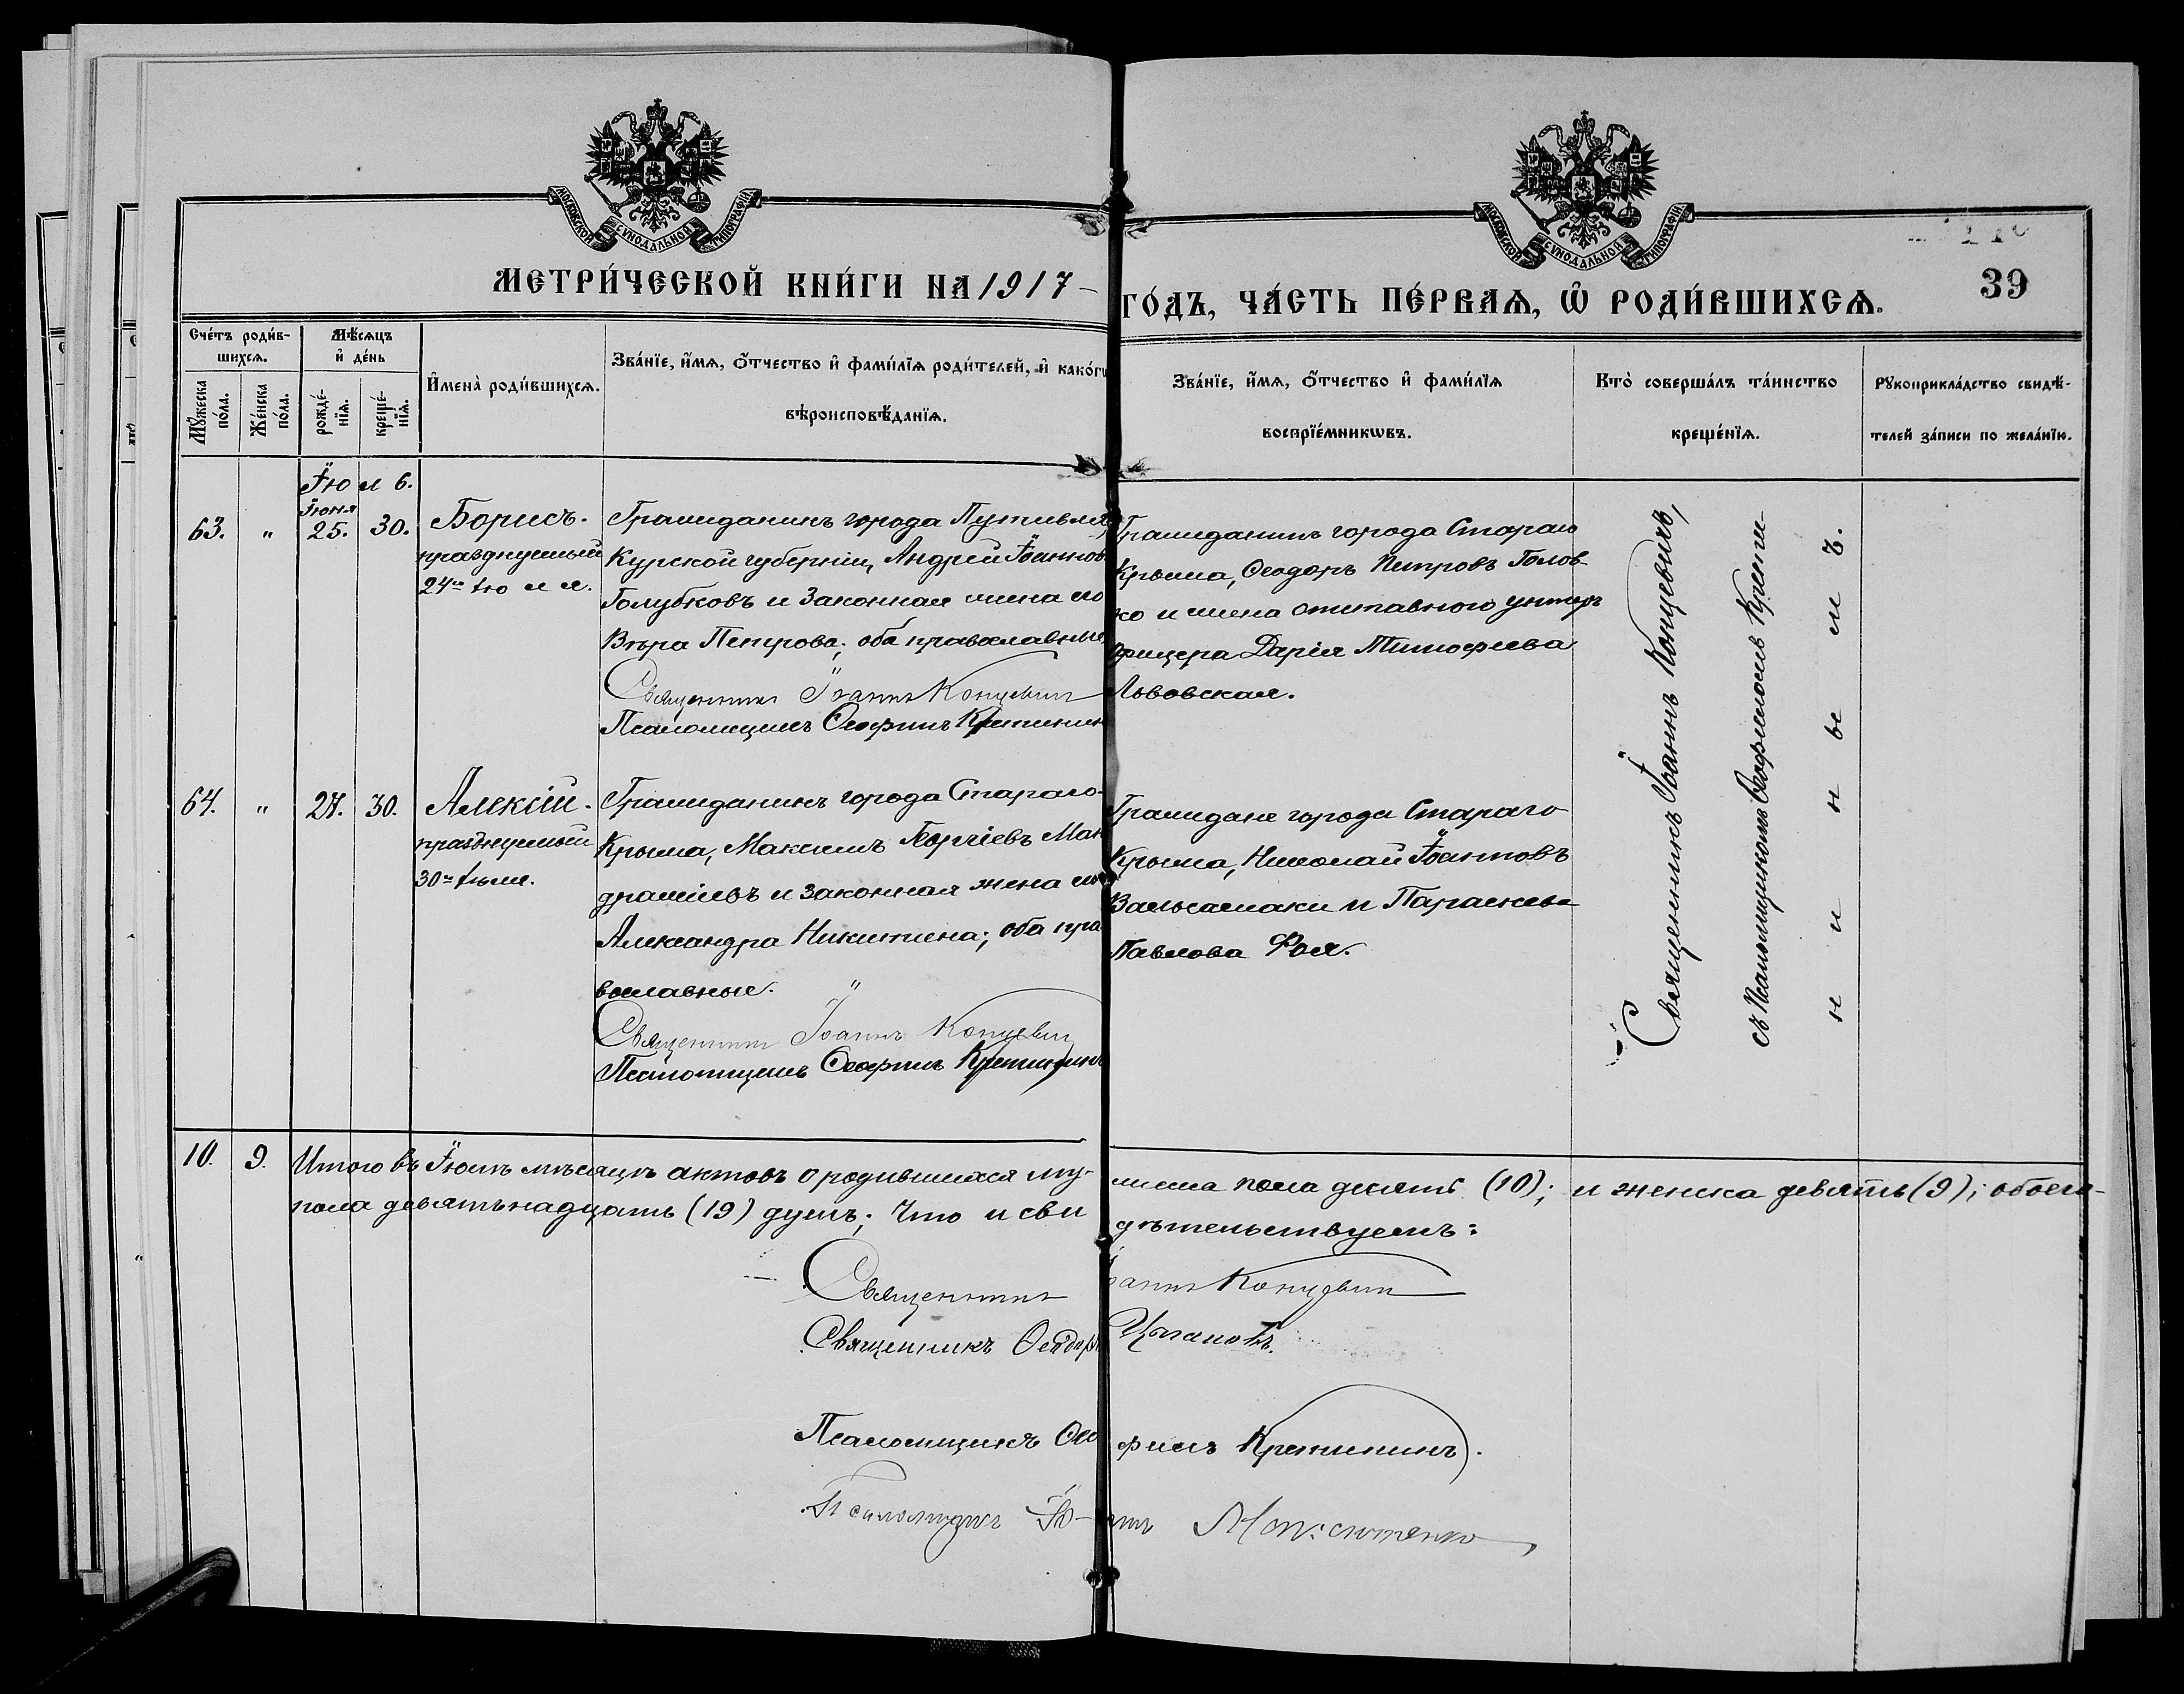 МОСКОВСКОЙ СУНОДАЛЬНОЙ ТИПОГРАФІИ
МОСКОВСКОЙ СУНОДАЛЬНОЙ ТИПОГРАФІИ
39
МЕТРИ́ЧЕСКОЙ КНИ́ГИ НА 1917 -
ГО́ДЪ, ЧА́СТЬ ПЕ́РВАѦ, Ѡ҆ РОДИ́ВШИХСѦ.
Сче́тъ роди́в-
шихсѧ.
Мꙋ́жеска по́ла.
Же́нска по́ла.
Мѣ́сѧцъ
и҆ де́нь
рожде́-
нїѧ.
креще́-
нїѧ.
И҆мена̀ роди́вшихсѧ.
Зва́нїе, и҆́мѧ, ѻ҆́тчество и҆ фами́лїѧ роди́телей, и҆ како́гѡ
вѣроисповѣ́данїѧ.
Зва́нїе, и҆́мѧ, ѻ҆́тчество и҆ фами́лїѧ
воспрїе́мникѡвъ.
Кто̀ соверша́лъ та́инство
креще́нїѧ.
Рꙋкоприкла́дство свидѣ́-
телей за́писи по жела́нїю.
Іюль.
63. " Іюня 25. 30. Борисъ.
празднуемый
24го Іюля.
Гражданинъ города Путивля,
Курской губерніи, Андрей Іоанновъ
Голубковъ и законная жена его
Вѣра Петрова; оба православные
Священникъ Іоаннъ Концевичъ
Псаломщикъ Ѳеофилъ Кретининъ
Гражданинъ города Стараго
Крыма, Ѳеодоръ Петровъ Голов-
ко и жена отставного унтеръ
офицера Дарія Тимофеева
Львовская.
64. " 27. 30. Алексій.
празднуемый
30го Іюля.
Гражданинъ города Стараго-
Крыма, Максимъ Георгіевъ Ман
дражіевъ и законная жена его
Александра Никитина; оба пра
вославные. "
Священникъ Іоаннъ Концевич
Псаломщикъ Ѳеофилъ Кретининъ
Граждане города Стараго
Крыма, Николай Іоанновъ
Вальсамаки и Параскева
Павлова Фоя.
Священникъ Іоаннъ Концевичъ,
съ Псаломщикомъ Ѳеофиломъ Крети-
нинымъ.
10. 9. Итого въ Іюлѣ мѣсяцѣ актовъ о родившихся му-
жеска пола десять (10); и женска девять (9); обоего-
пола девятьнадцать (19) душъ; Что и сви
дѣтельствуемъ:
Священникъ Іоаннъ Концевич
Священникъ Ѳеодоръ Цыгановъ.
Псаломщикъ Ѳеофилъ Кретининъ.
Псаломщикъ